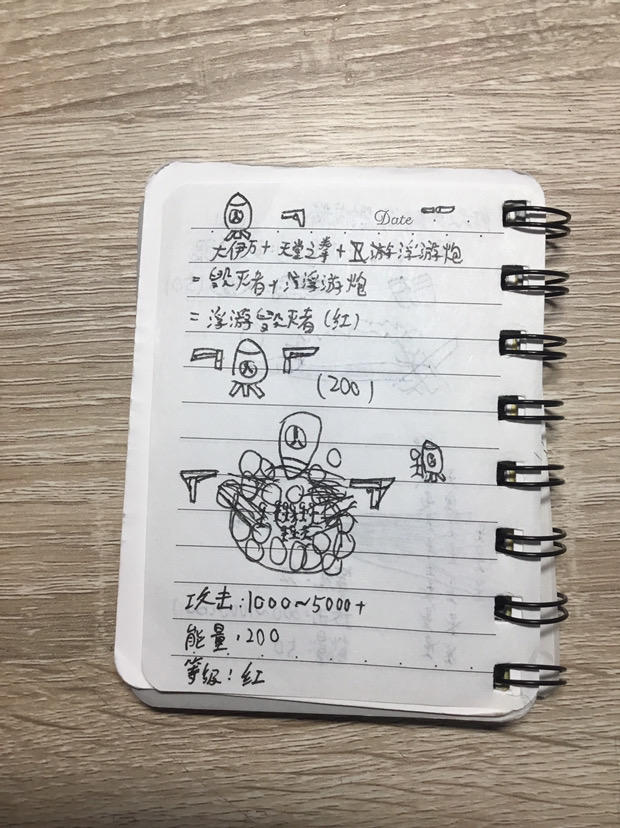 Date
大伊万+天堂之拳+浮游炮
=毁灭者+浮游炮
=浮游毁灭者(红)
(200)
攻击:1000~5000+
能量:200
等级:红